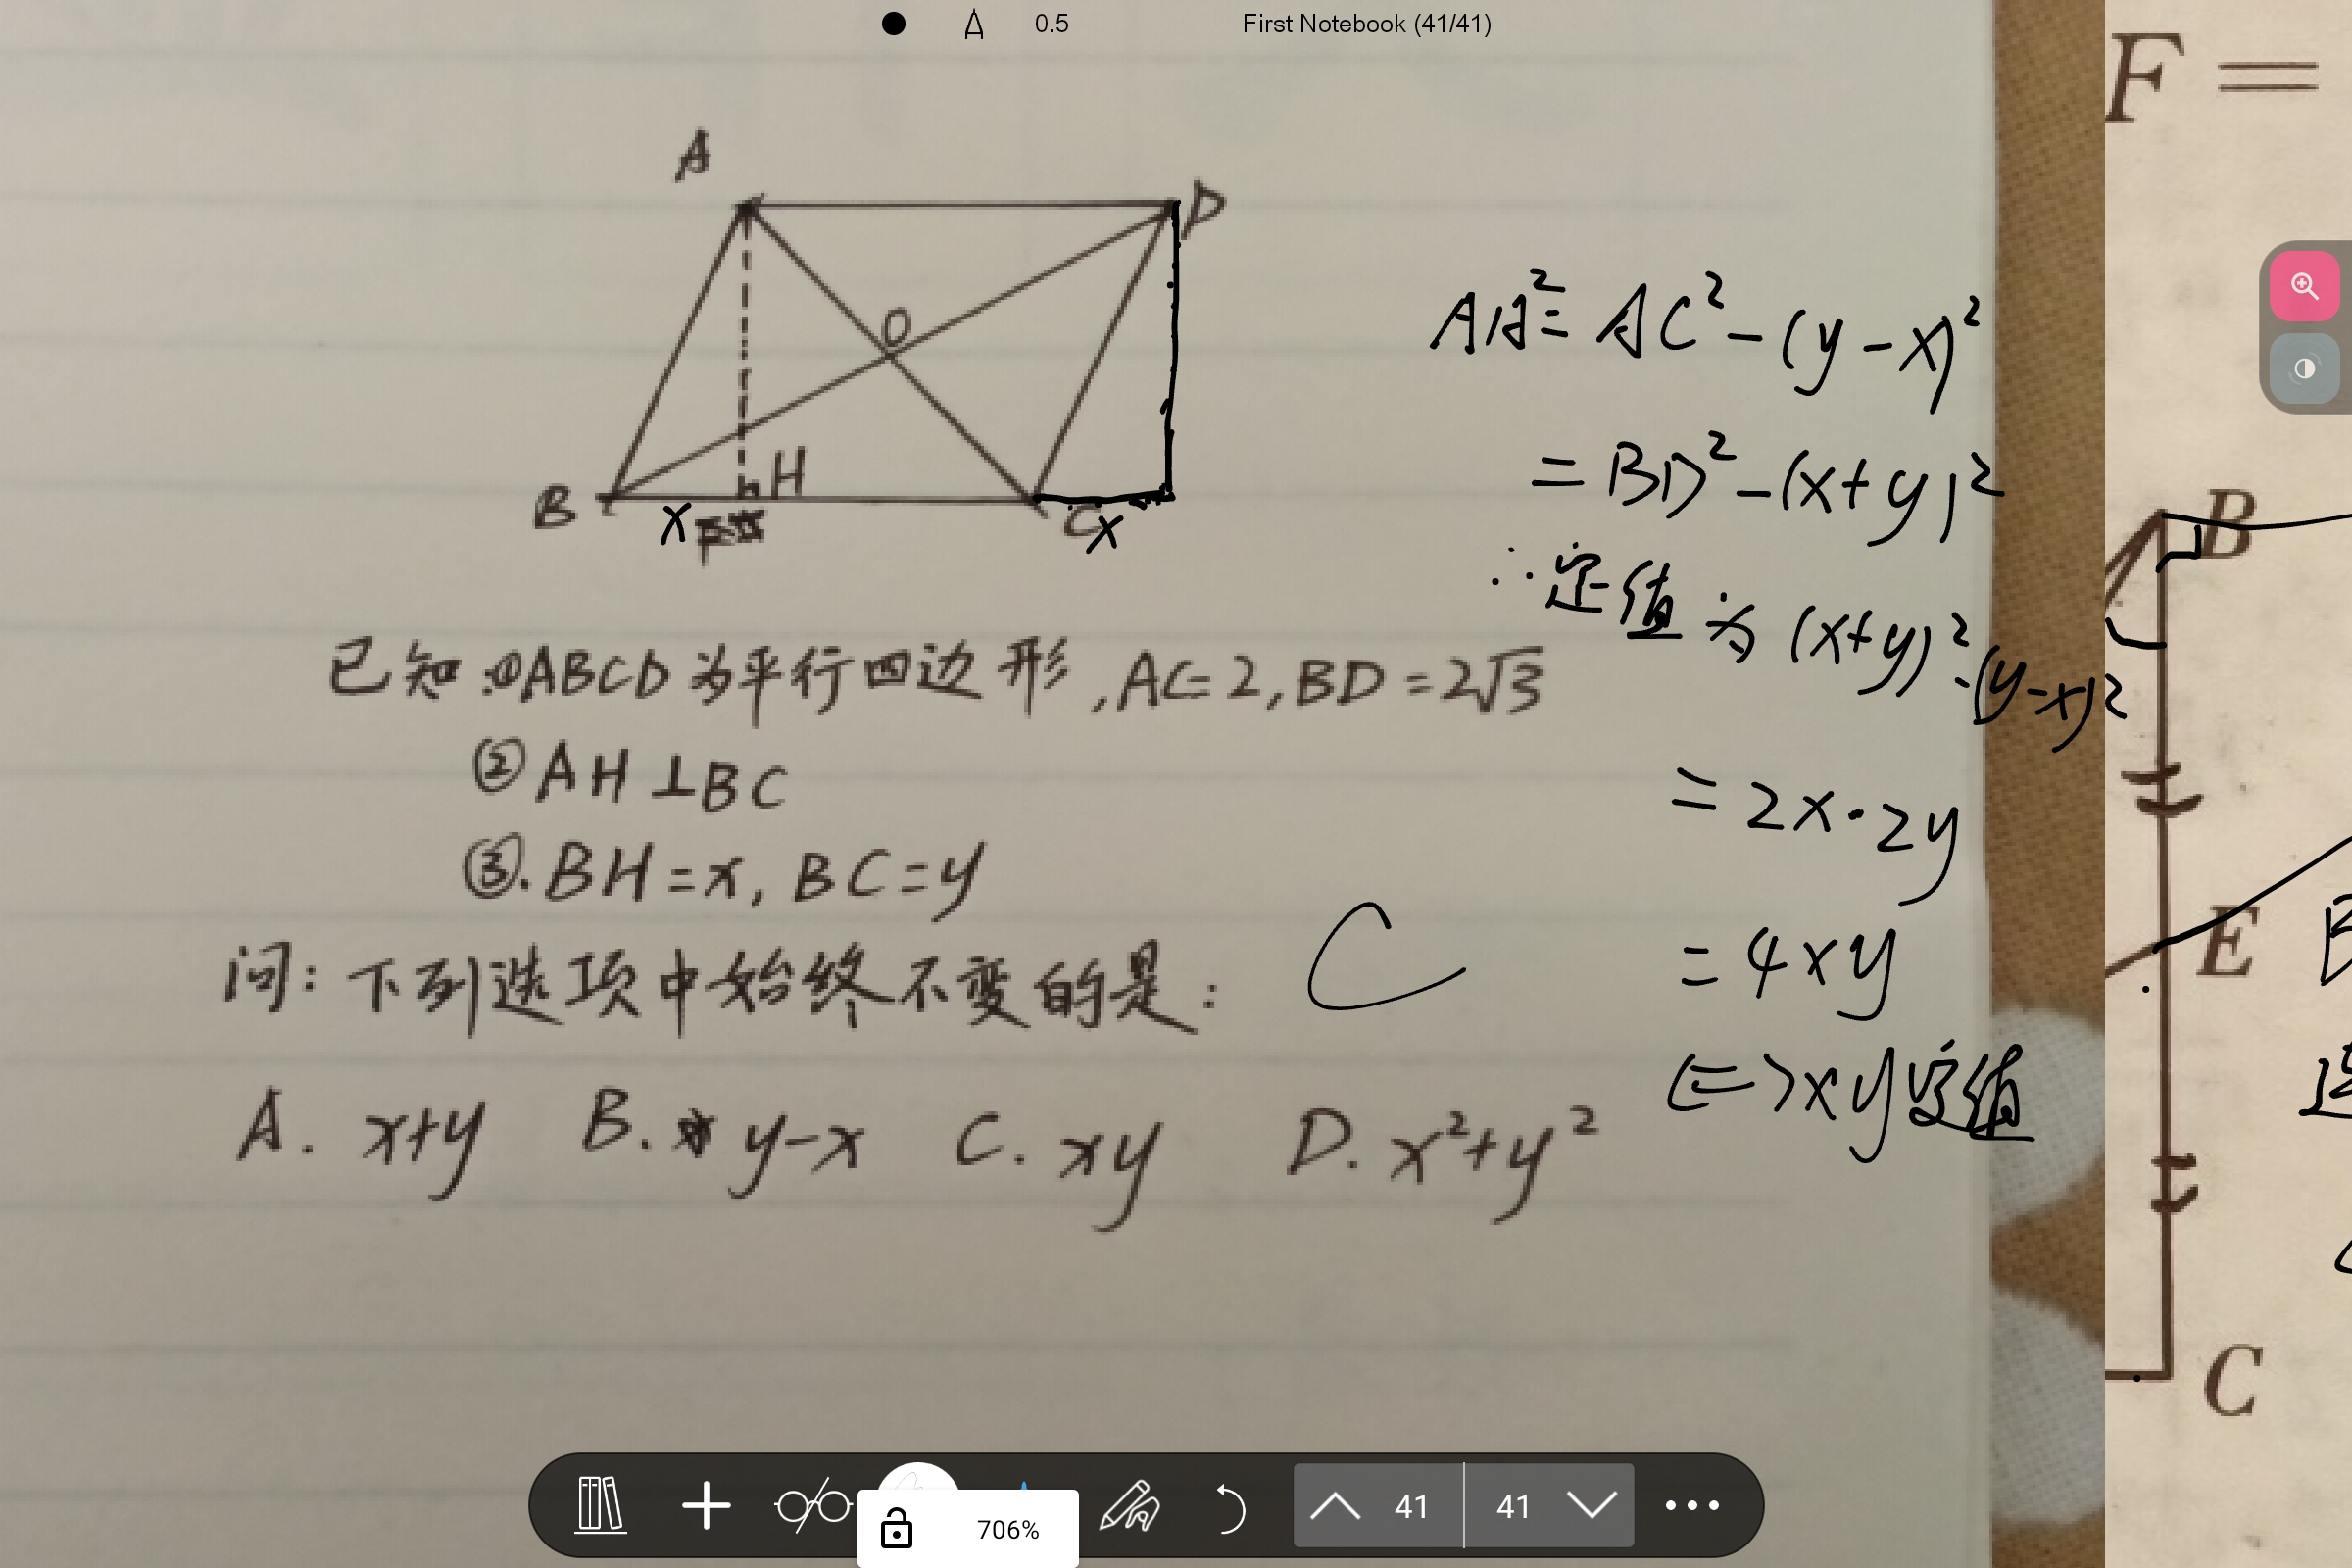 0.5 First Notebook (41/41)
F =
A
D
O
B
H
C
x
x
已知:①ABCD为平行四边形,AC=2,BD=2√3
②AH⊥BC
③.BH=x,BC=y
问:下列选项中始终不变的是: C
A. x+y B. y-x C. xy D. x²+y²
AH²=AC²-(y-x)²
=BD²-(x+y)²
∴定值为(x+y)²-(y-x)²
=2x·2y
=4xy
<=>xy定值
B
E
C
41 41
706%